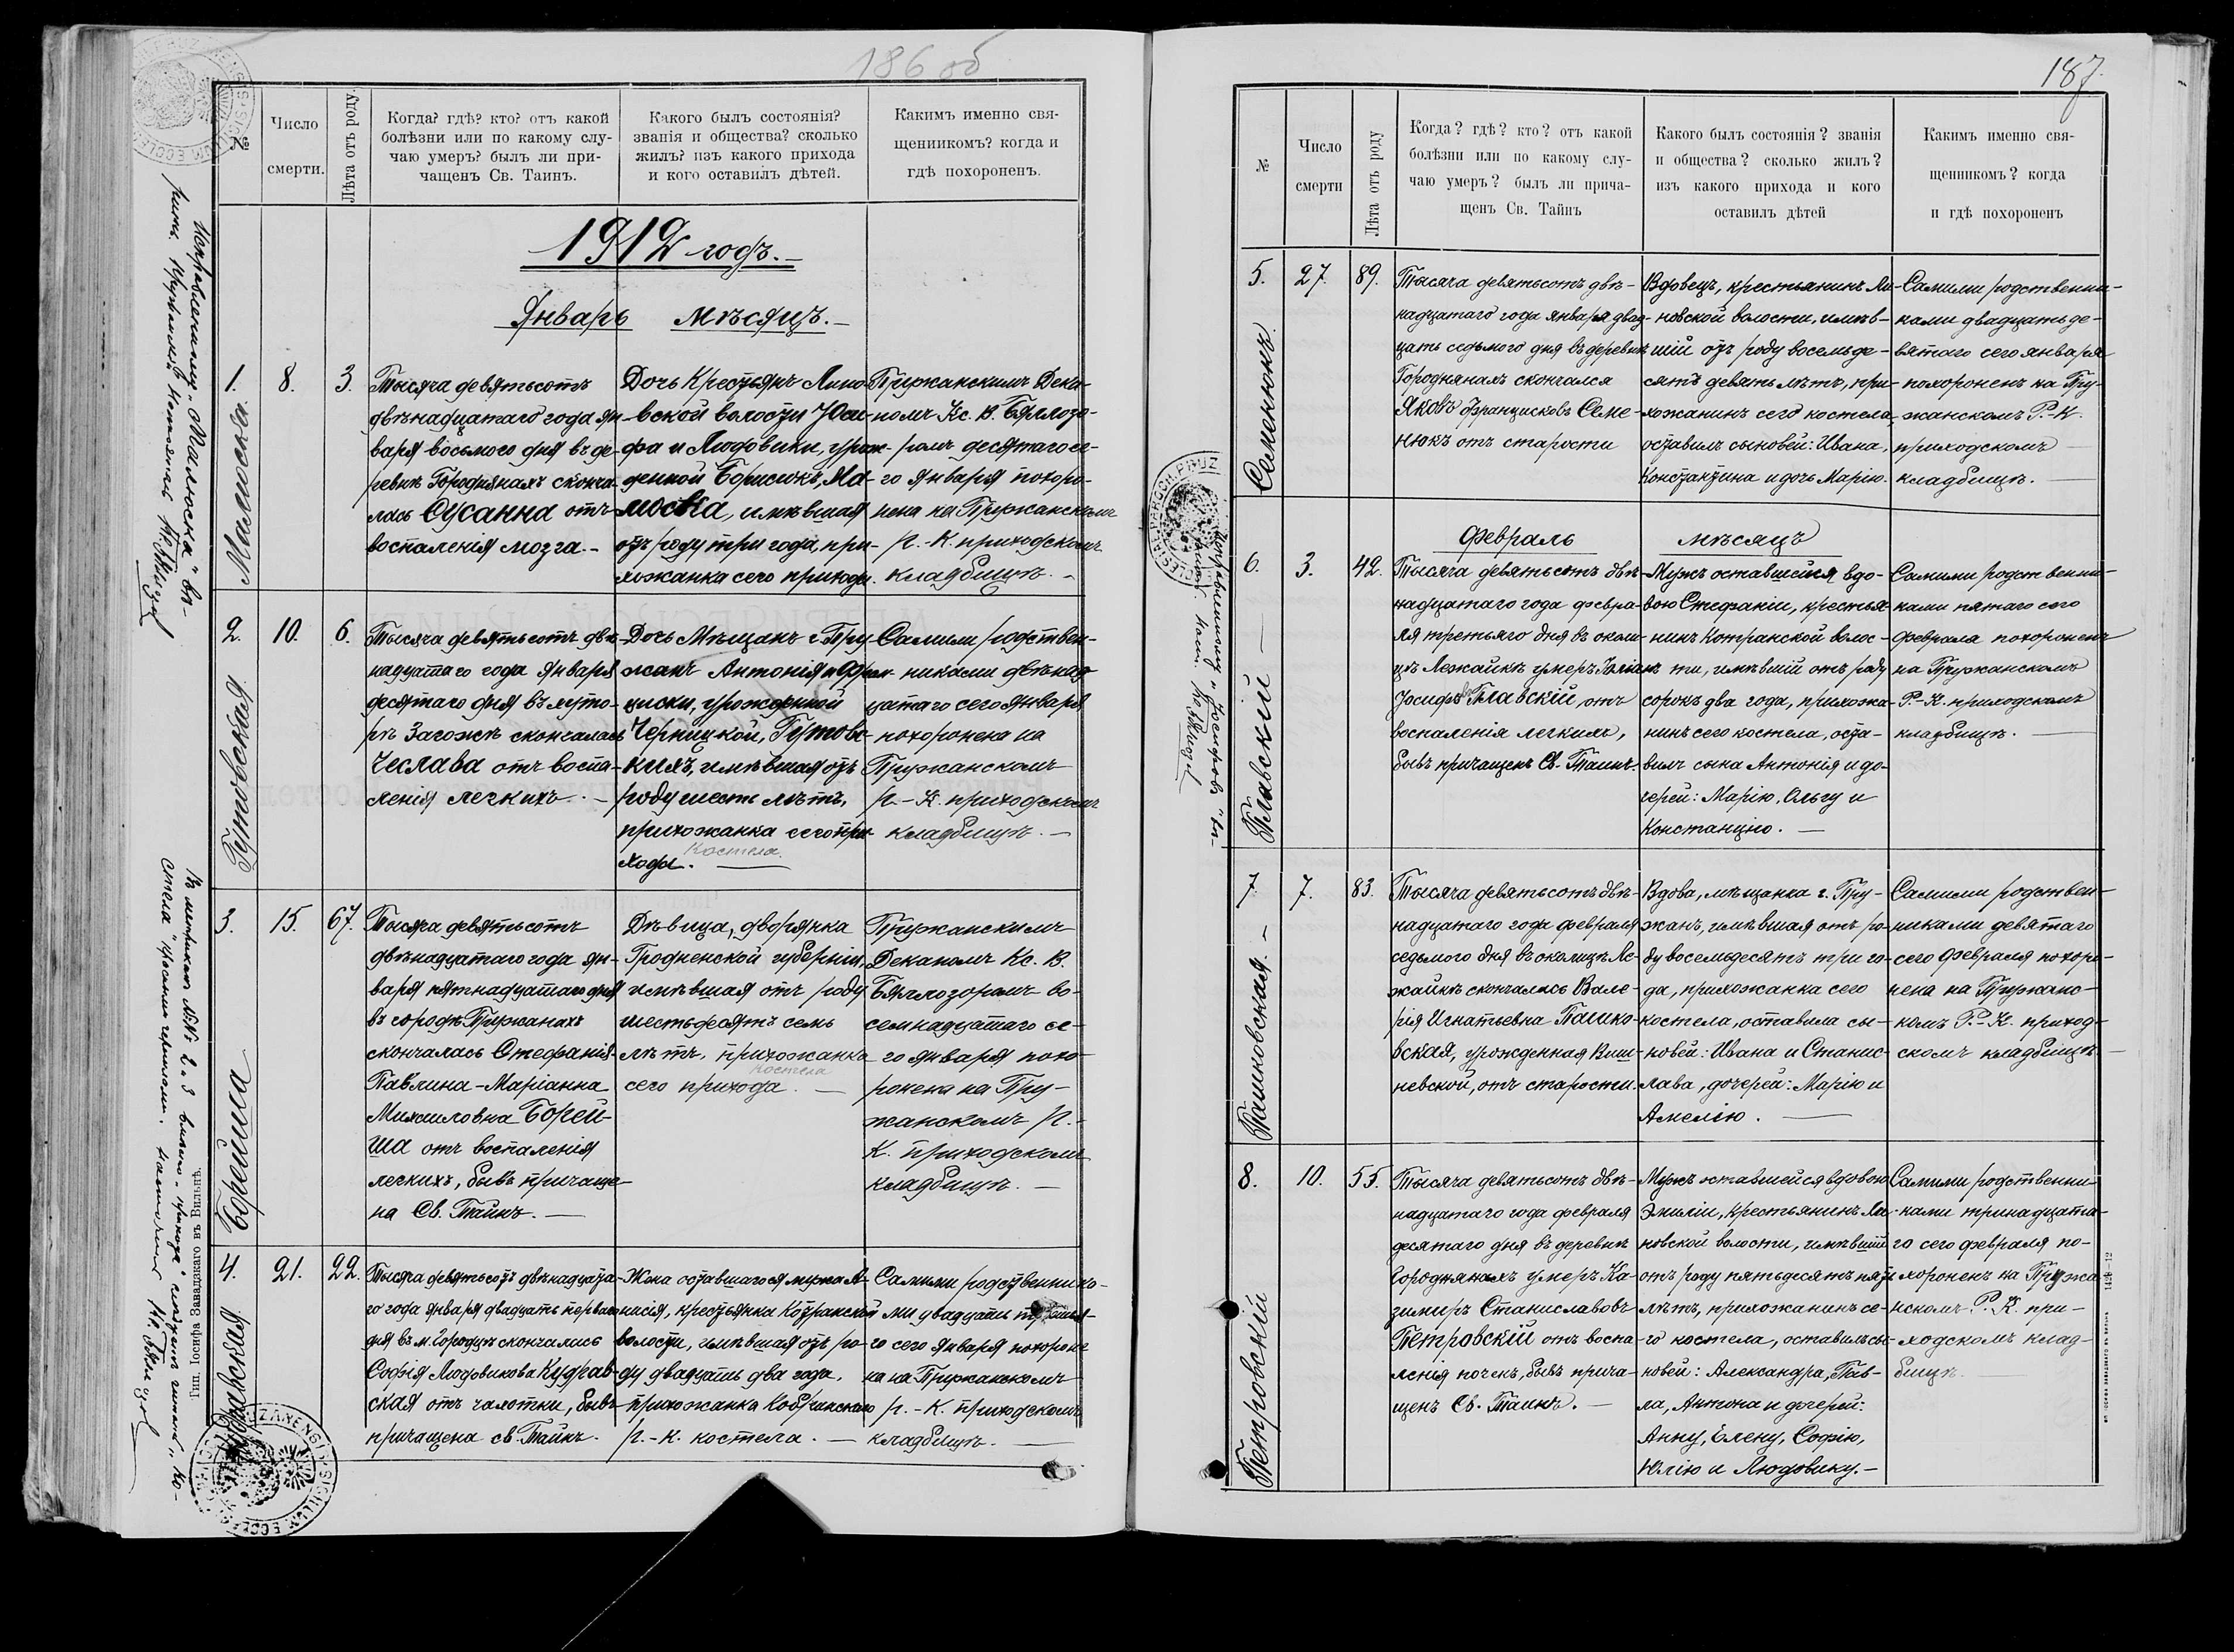 186 об
№
Число
смерти.
Лѣта отъ роду.
Когда? гдѣ? кто? отъ какой
болѣзни или по какому слу-
чаю умеръ? былъ ли при-
чащенъ Св. Таинъ.
Какого былъ состоянія?
званія и общества? сколько
жилъ? изъ какого прихода
и кого оставилъ дѣтей.
Какимъ именно свя-
щенникомъ? когда и
гдѣ похороненъ.
1912 годъ.
Январь мѣсяцъ.
1.
Малюска.
8.
3.
Тысяча девятьсотъ
двѣнадцатаго года ян-
варя восьмого дня въ де-
ревнѣ Городнянахъ сконча-
лась Сусанна отъ
воспаленія мозга.
Дочь Крестьянъ Лино-
вской волости Юси-
фа и Людовики, урож-
денной Борисюкъ, Ма-
люска, имѣвшая
отъ роду три года, при-
хожанка сего прихода.
Пружанскимъ Дека-
номъ Кс. В. Бялло­зо-
ромъ десятаго се-
го января похоро-
нена на Пружанскомъ
Р.-К. приходскомъ
кладбищѣ.
2.
Гутовская
10.
6.
Тысяча девятьсотъ двѣ-
надцатаго года января
десятаго дня въ хуто-
рѣ Загожѣ скончалась
Чеслава отъ воспа-
ленія легкихъ.
Дочь Мѣщанъ г. Пру-
жанъ Антонія и Фран-
циски, урожденной
Черницкой, Гутовс-
кихъ, имѣвшая отъ
роду шесть лѣтъ,
прихожанка сего при-
хода.
Костела.
Самими родствен-
никами двѣнад-
цатаго сего января
похоронена на
Пружанскомъ
Р.-К. приходскомъ
кладбищѣ.
3.
Борейша
15.
67.
Тысяча девятьсотъ
двѣнадцатаго года ян-
варя пятнадцатаго дня
въ городѣ Пружанахъ
скончалась Стефанія-
Павлина-Маріанна
Михайловна Борей-
ша отъ воспаленія
легкихъ, бывъ причаще-
на Св. Тайнъ.
Дѣвица, дворянка
Гродненской губерніи,
имѣвшая отъ роду
шестьдесятъ семь
лѣтъ, прихожанка
сего прихода.
Костела
Пружанскимъ
Деканомъ Кс. В.
Бяллозоромъ во-
семнадцатаго се-
го января похо-
ронена на Пру-
жанскомъ Р.-
К. приходскомъ
кладбищѣ.
4.
Кудравская
21.
22.
Тысяча девятьсотъ двѣнадцата-
го года января двадцать перваго
дня въ м. Городцѣ скончалась
Софія Людовикова Кудрав-
ская отъ чахотки, бывъ
причащена св. Тайнъ.
Жена оставшагося мужа А-
насія, крестьянка Котранской
волости, имѣвшая отъ ро-
ду двадцать два года,
прихожанка Кобринскаго
Р.-К. костела.
Самими родственника-
ми двадцать третья-
го сего января похороне-
на на Пружанскомъ
Р.-К. приходскомъ
кладбищѣ.
Исправленному „Малюска" вѣ-
рить.
Въ метрикахъ №№ 2 и 3 вмѣсто „прихода" слѣдуетъ читать „Ко-
стела"
Тип. Іосифа Завадзкаго въ Вильнѣ.
187.
№
Число
смерти
Лѣта отъ роду
Когда? гдѣ? кто? отъ какой
болѣзни или по какому слу-
чаю умеръ? былъ ли прича-
щенъ Св. Тайнъ
Какого былъ состоянія? званія
и общества? сколько жилъ?
изъ какого прихода и кого
оставилъ дѣтей
Какимъ именно свя-
щенникомъ? когда
и гдѣ похороненъ
5.
Семенюкъ
27.
89.
Тысяча девятьсотъ двѣ-
надцатаго года января двад-
цать седьмого дня въ деревнѣ
Городнянахъ скончался
Яковъ Францисковъ Семе-
нюкъ отъ старости
Вдовецъ, крестьянинъ Ли-
новской волости, имѣв-
шій отъ роду восемьде-
сятъ девять лѣтъ, при-
хожанинъ сего костела,
оставилъ сыновей: Ивана,
Константина и дочь Марію.
Самими родственни-
ками двадцать де-
вятаго сего января
похороненъ на Пру-
жанскомъ Р.-К.
приходскомъ
кладбищѣ.
Февраль мѣсяцъ
6.
Главскій
3.
42.
Тысяча девятьсотъ двѣ-
надцатаго года февра-
ля третьяго дня въ околи-
цѣ Лежайкѣ умеръ Юліанъ
Іосифовъ Главскій, отъ
воспаленія легкихъ,
бывъ причащенъ Св. Таинъ.
Мужъ оставшейся вдо-
вою Стефаніи, крестья-
нинъ Котранской волос-
ти, имѣвшій отъ роду
сорокъ два года, прихожа-
нинъ сего костела, оста-
вилъ сына Антонія и до-
черей: Марію, Ольгу и
Констанцію.
Самими родственни-
ками пятаго сего
февраля похороненъ
на Пружанскомъ
Р.-К. приходскомъ
кладбищѣ.
7.
Пашковская.
7.
83.
Тысяча девятьсотъ двѣ-
надцатаго года февраля
седьмого дня въ околицѣ Ле-
жайкѣ скончалась Вале-
рія Игнатьевна Пашко-
вская, урожденная Виш-
невской, отъ старости.
Вдова, мѣщанка г. Пру-
жанъ, имѣвшая отъ ро-
ду восемьдесятъ три го-
да, прихожанка сего
костела, оставила сы-
новей: Ивана и Станис-
лава, дочерей: Марію и
Амелію.
Самими родствен-
никами девятаго
сего февраля похоро-
нена на Пружанс-
комъ Р.-К. приход-
скомъ кладбищѣ
8.
Петровскій
10.
55.
Тысяча девятьсотъ двѣ-
надцатаго года февраля
десятаго дня въ деревнѣ
Городнянахъ умеръ Ка-
зимиръ Станиславовъ
Петровскій отъ воспа-
ленія почекъ, бывъ прича-
щенъ Св. Таинъ.
Мужъ оставшейся вдовою
Эмиліи, крестьянинъ Ли-
новской волости, имѣвшій
отъ роду пятьдесятъ пять
лѣтъ, прихожанинъ се-
го костела, оставилъ сы-
новей: Александра, Пав-
ла, Антона и дочерей:
Анну, Елену, Софію,
Юлію и Людовику.
Самими родственни-
ками тринадцата-
го сего февраля по-
хороненъ на Пружа-
нскомъ Р.-К. при-
ходскомъ клад-
бищѣ.